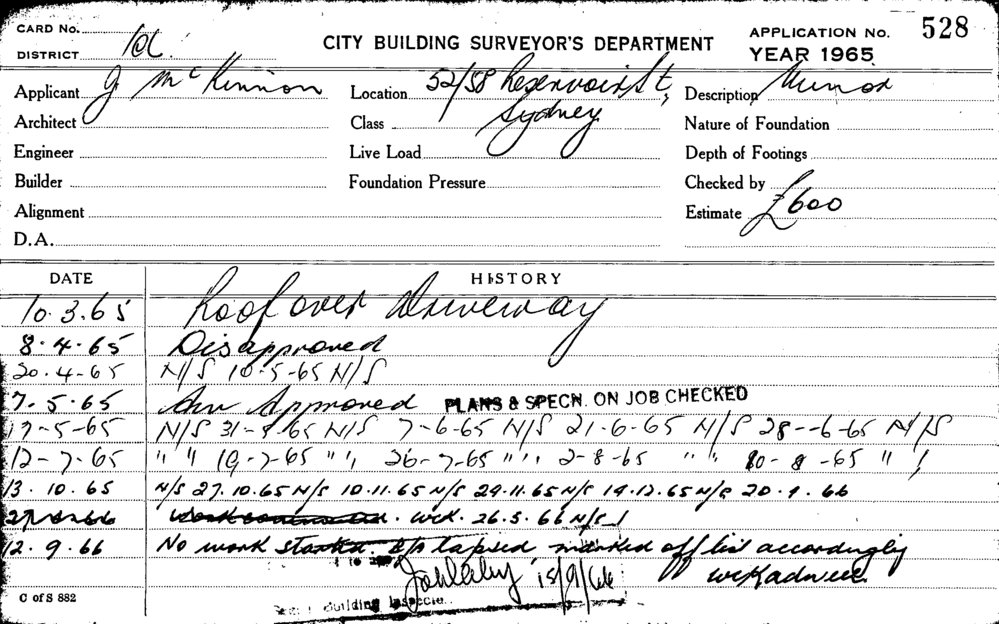 CARD No.
DISTRICT
CITY BUILDING SURVEYOR'S DEPARTMENT
APPLICATION No. 528
YEAR 1965
Applicant J McKinnon
Location 52/58 Reservoir St, Sydney
Description Minor
Architect
Class
Nature of Foundation
Engineer
Live Load
Depth of Footings
Builder
Foundation Pressure
Checked by
Alignment
Estimate £600
D.A.
DATE HISTORY
10.3.65 Roof over Driveway
8.4.65 Disapproved
20.4-65 N/S 10-5-65 N/S
7.5.65 Approved PLANS & SPECN. ON JOB CHECKED
17-5-65 N/S 31-5-65 N/S 7-6-65 N/S 21-6-65 N/S 28--6-65 N/S
12-7-65 " " 19-7-65 " " 26-7-65 " " 2-8-65 " " 10-8-65 "
13.10.65 N/S 27.10.65 N/S 10.11.65 N/S 29.11.65 N/S 14.12.65 N/S 20.1.66
26.5.66 N/S
12.9.66 No work started. lapsed marked off list accordingly
15/9/66
Building Inspector
C of S 882